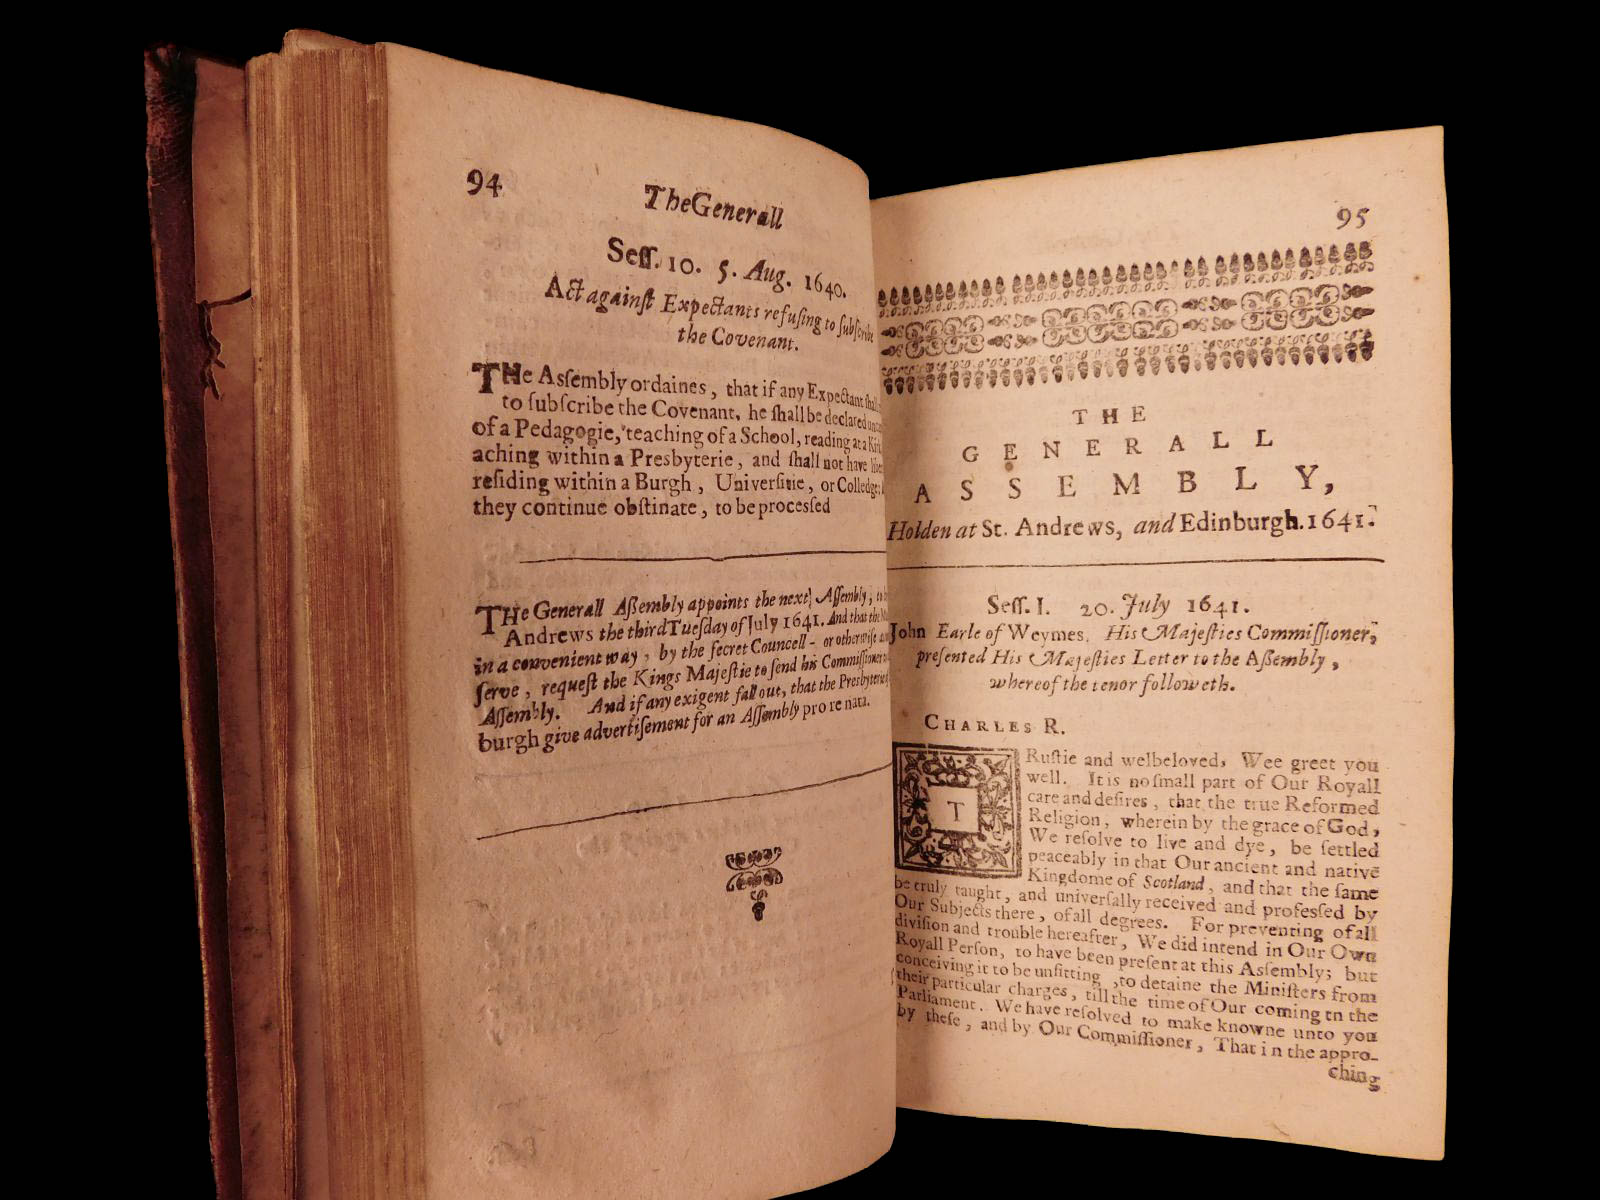 94
The Generall
Seſſ. 10. 5. Aug. 1640.
Act againſt Expectants refuſing to ſubſcribe
the Covenant.
THe Aſſembly ordaines, that if any Expectant ſhall
to ſubſcribe the Covenant, he ſhall be declared
of a Pedagogie, teaching of a School, reading at a Kirk
aching within a Presbyterie, and ſhall not have
reſiding within a Burgh, Univerſitie, or Colledge:
they continue obſtinate, to be proceſſed
THe Generall Aſſembly appoints the next Aſſembly, to
Andrews the third Tueſday of July 1641. And that the
in a convenient way, by the ſecret Councell - or otherwiſe
ſerve, requeſt the Kings Majeſtie to ſend his Commiſſioner
Aſſembly. And if any exigent fall out, that the Presbyterie
burgh give advertiſement for an Aſſembly pro re nata.
95
THE
GENERALL
ASSEMBLY,
Holden at St. Andrews, and Edinburgh. 1641.
Seſſ. I. 20. July 1641.
John Earle of Weymes, His Majeſties Commiſſioner,
preſented His Majeſties Letter to the Aſſembly,
whereof the tenor followeth.
CHARLES R.
TRuſtie and welbeloved, Wee greet you
well. It is no ſmall part of Our Royall
care and deſires, that the true Reformed
Religion, wherein by the grace of God,
We reſolve to live and dye, be ſettled
peaceably in that Our ancient and native
Kingdome of Scotland, and that the ſame
be truly taught, and univerſally received and profeſſed by
Our Subjects there, of all degrees. For preventing of all
diviſion and trouble hereafter, We did intend in Our Own
Royall Perſon, to have been preſent at this Aſſembly; but
conceiving it to be unfitting, to detaine the Miniſters from
their particular charges, till the time of Our coming tn the
Parliament. We have reſolved to make knowne unto you
by theſe, and by Our Commiſſioner, That in the appro-
ching